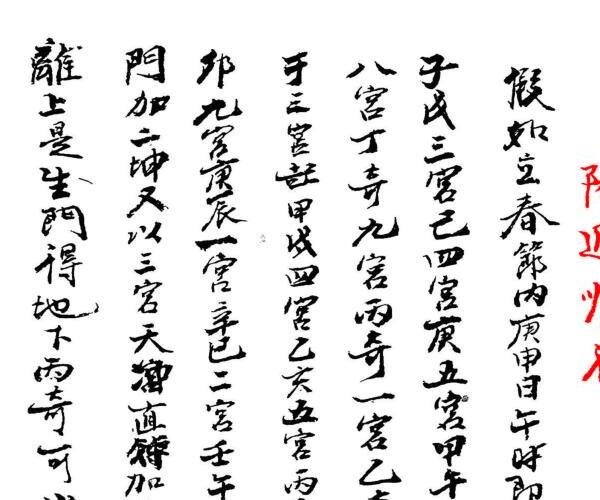 假如立春節内庚申日午時即
子戊三宮己四宮庚五宮甲午
八宮丁奇九宮丙奇一宮乙
于三宮起甲戌四宮乙亥五宮丙
卯九宮庚辰一宮辛巳二宮壬午
門加二坤又以三宮天直加
離上是生門得地下丙奇可